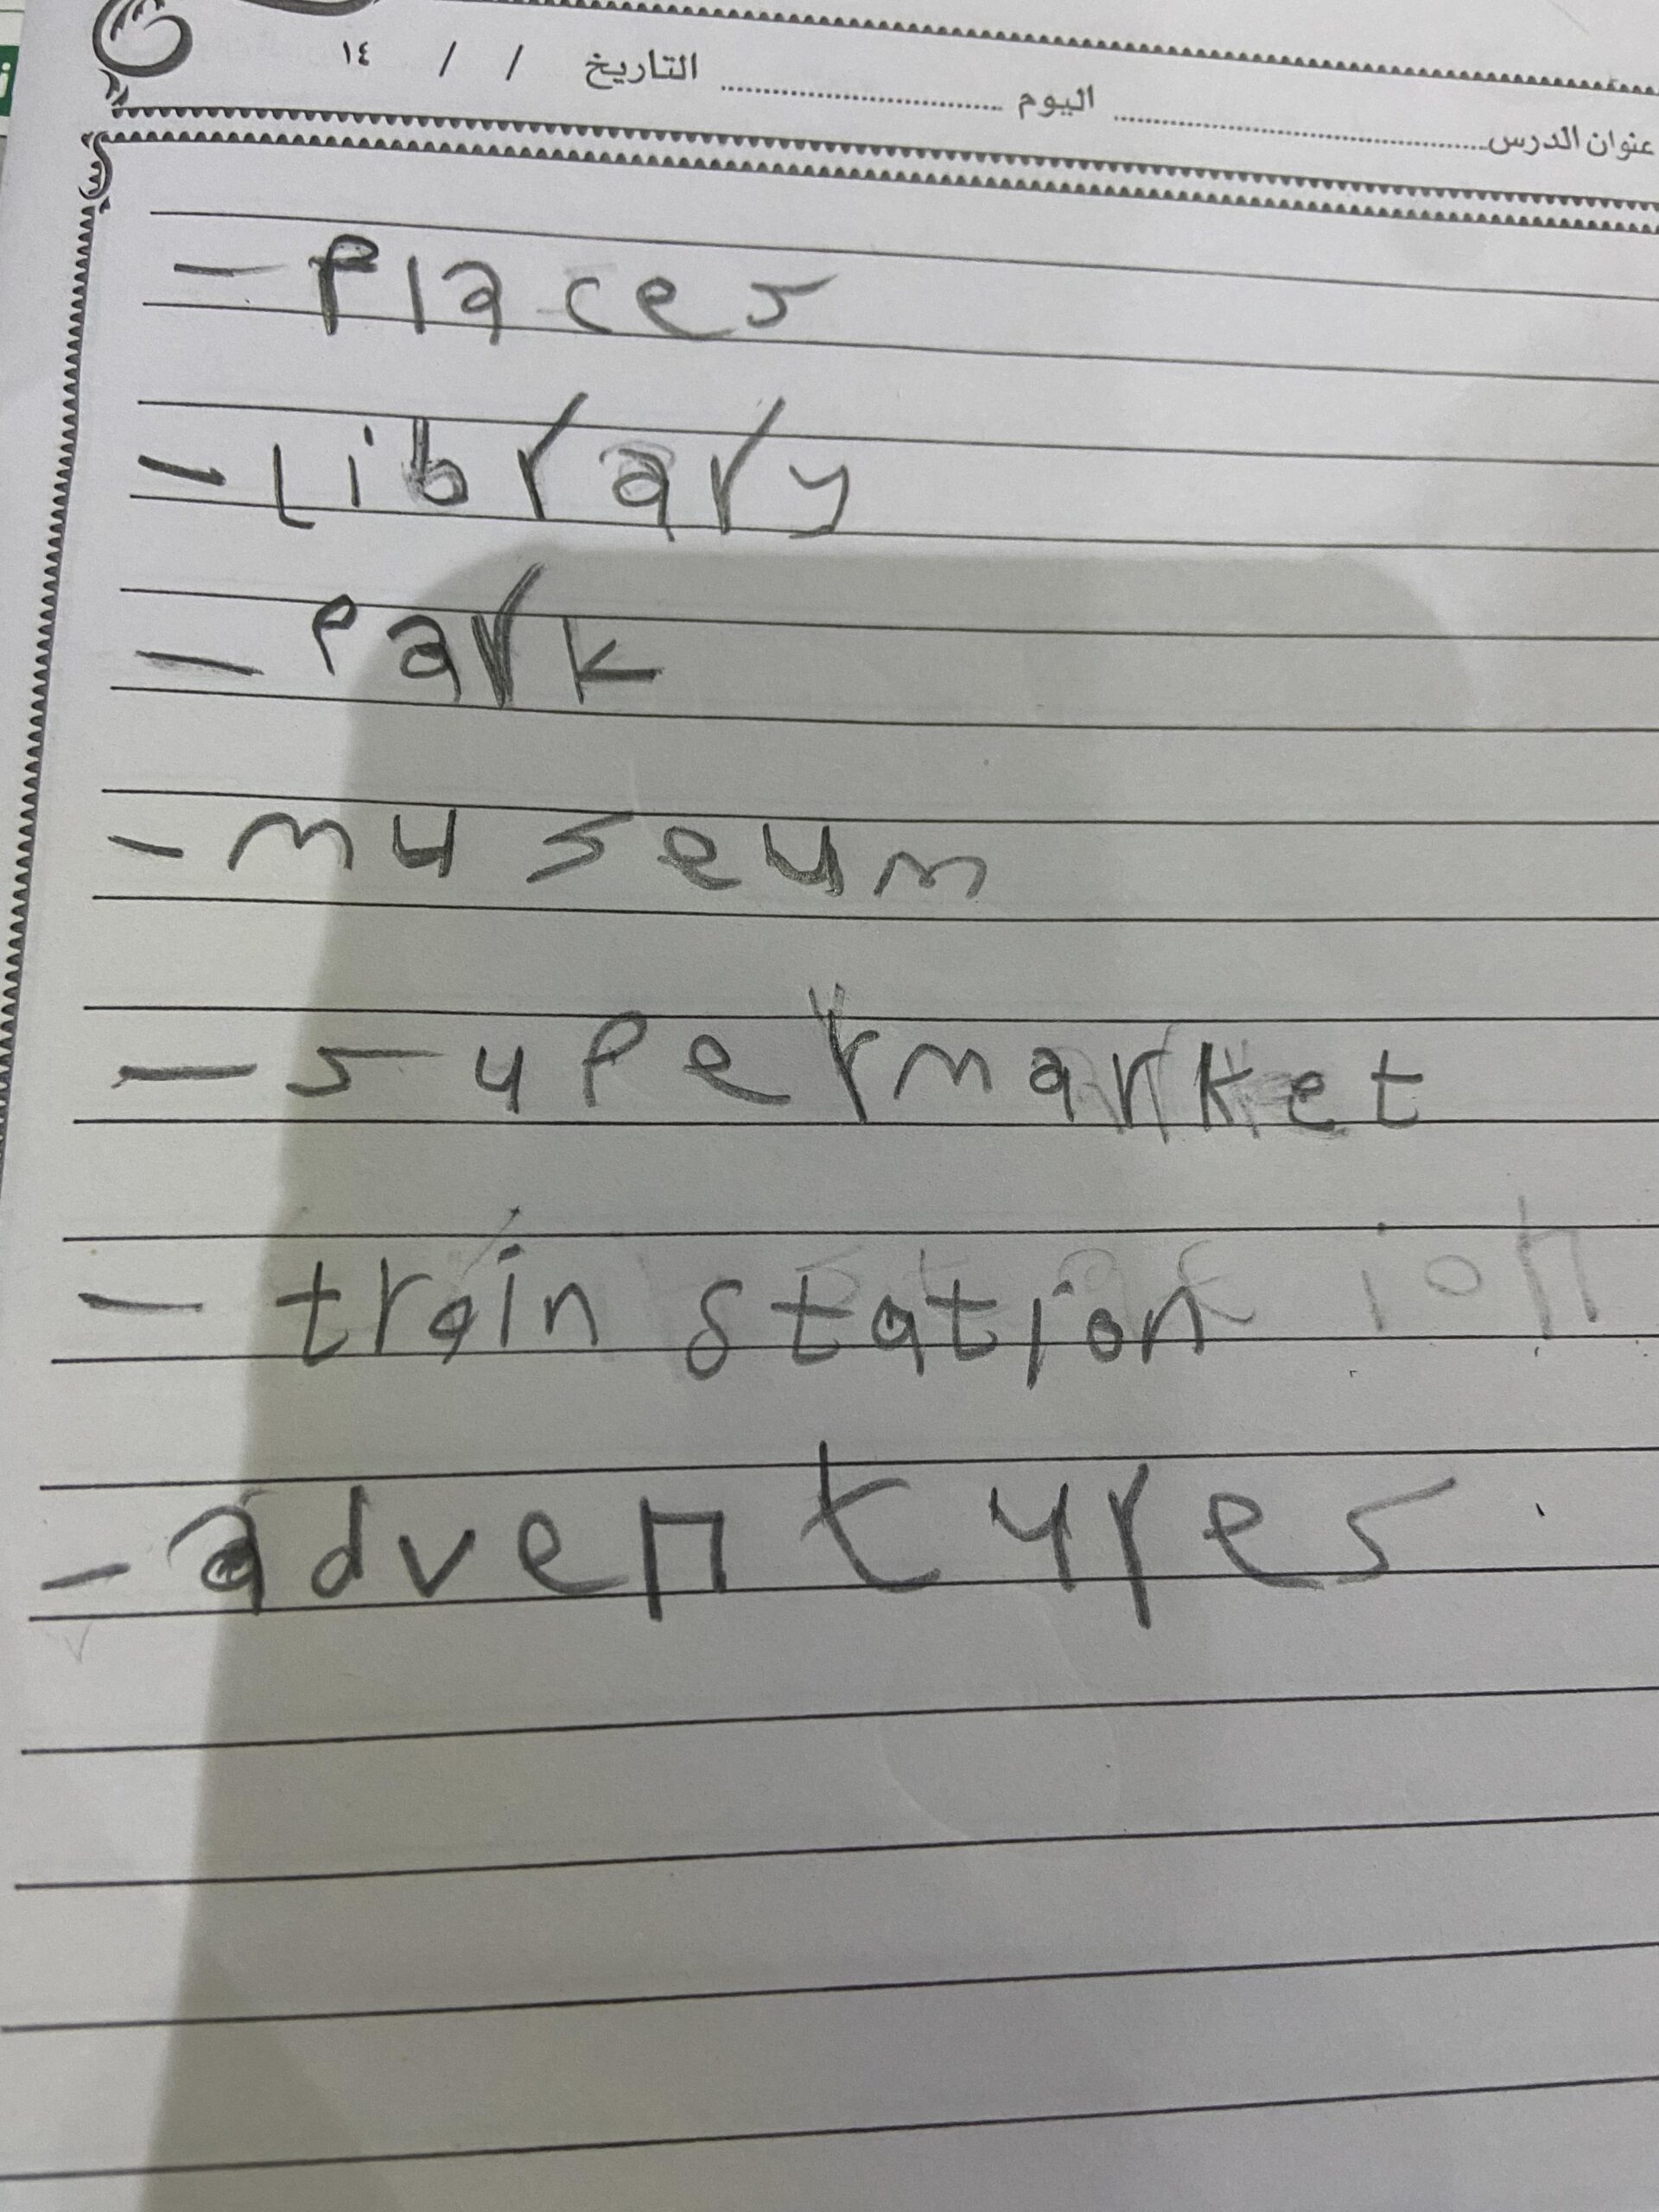 عنوان الدرس اليوم التاريخ / / ١٤
- Places
- Library
- Park
- museum
- supermarket
- train station
- adventures